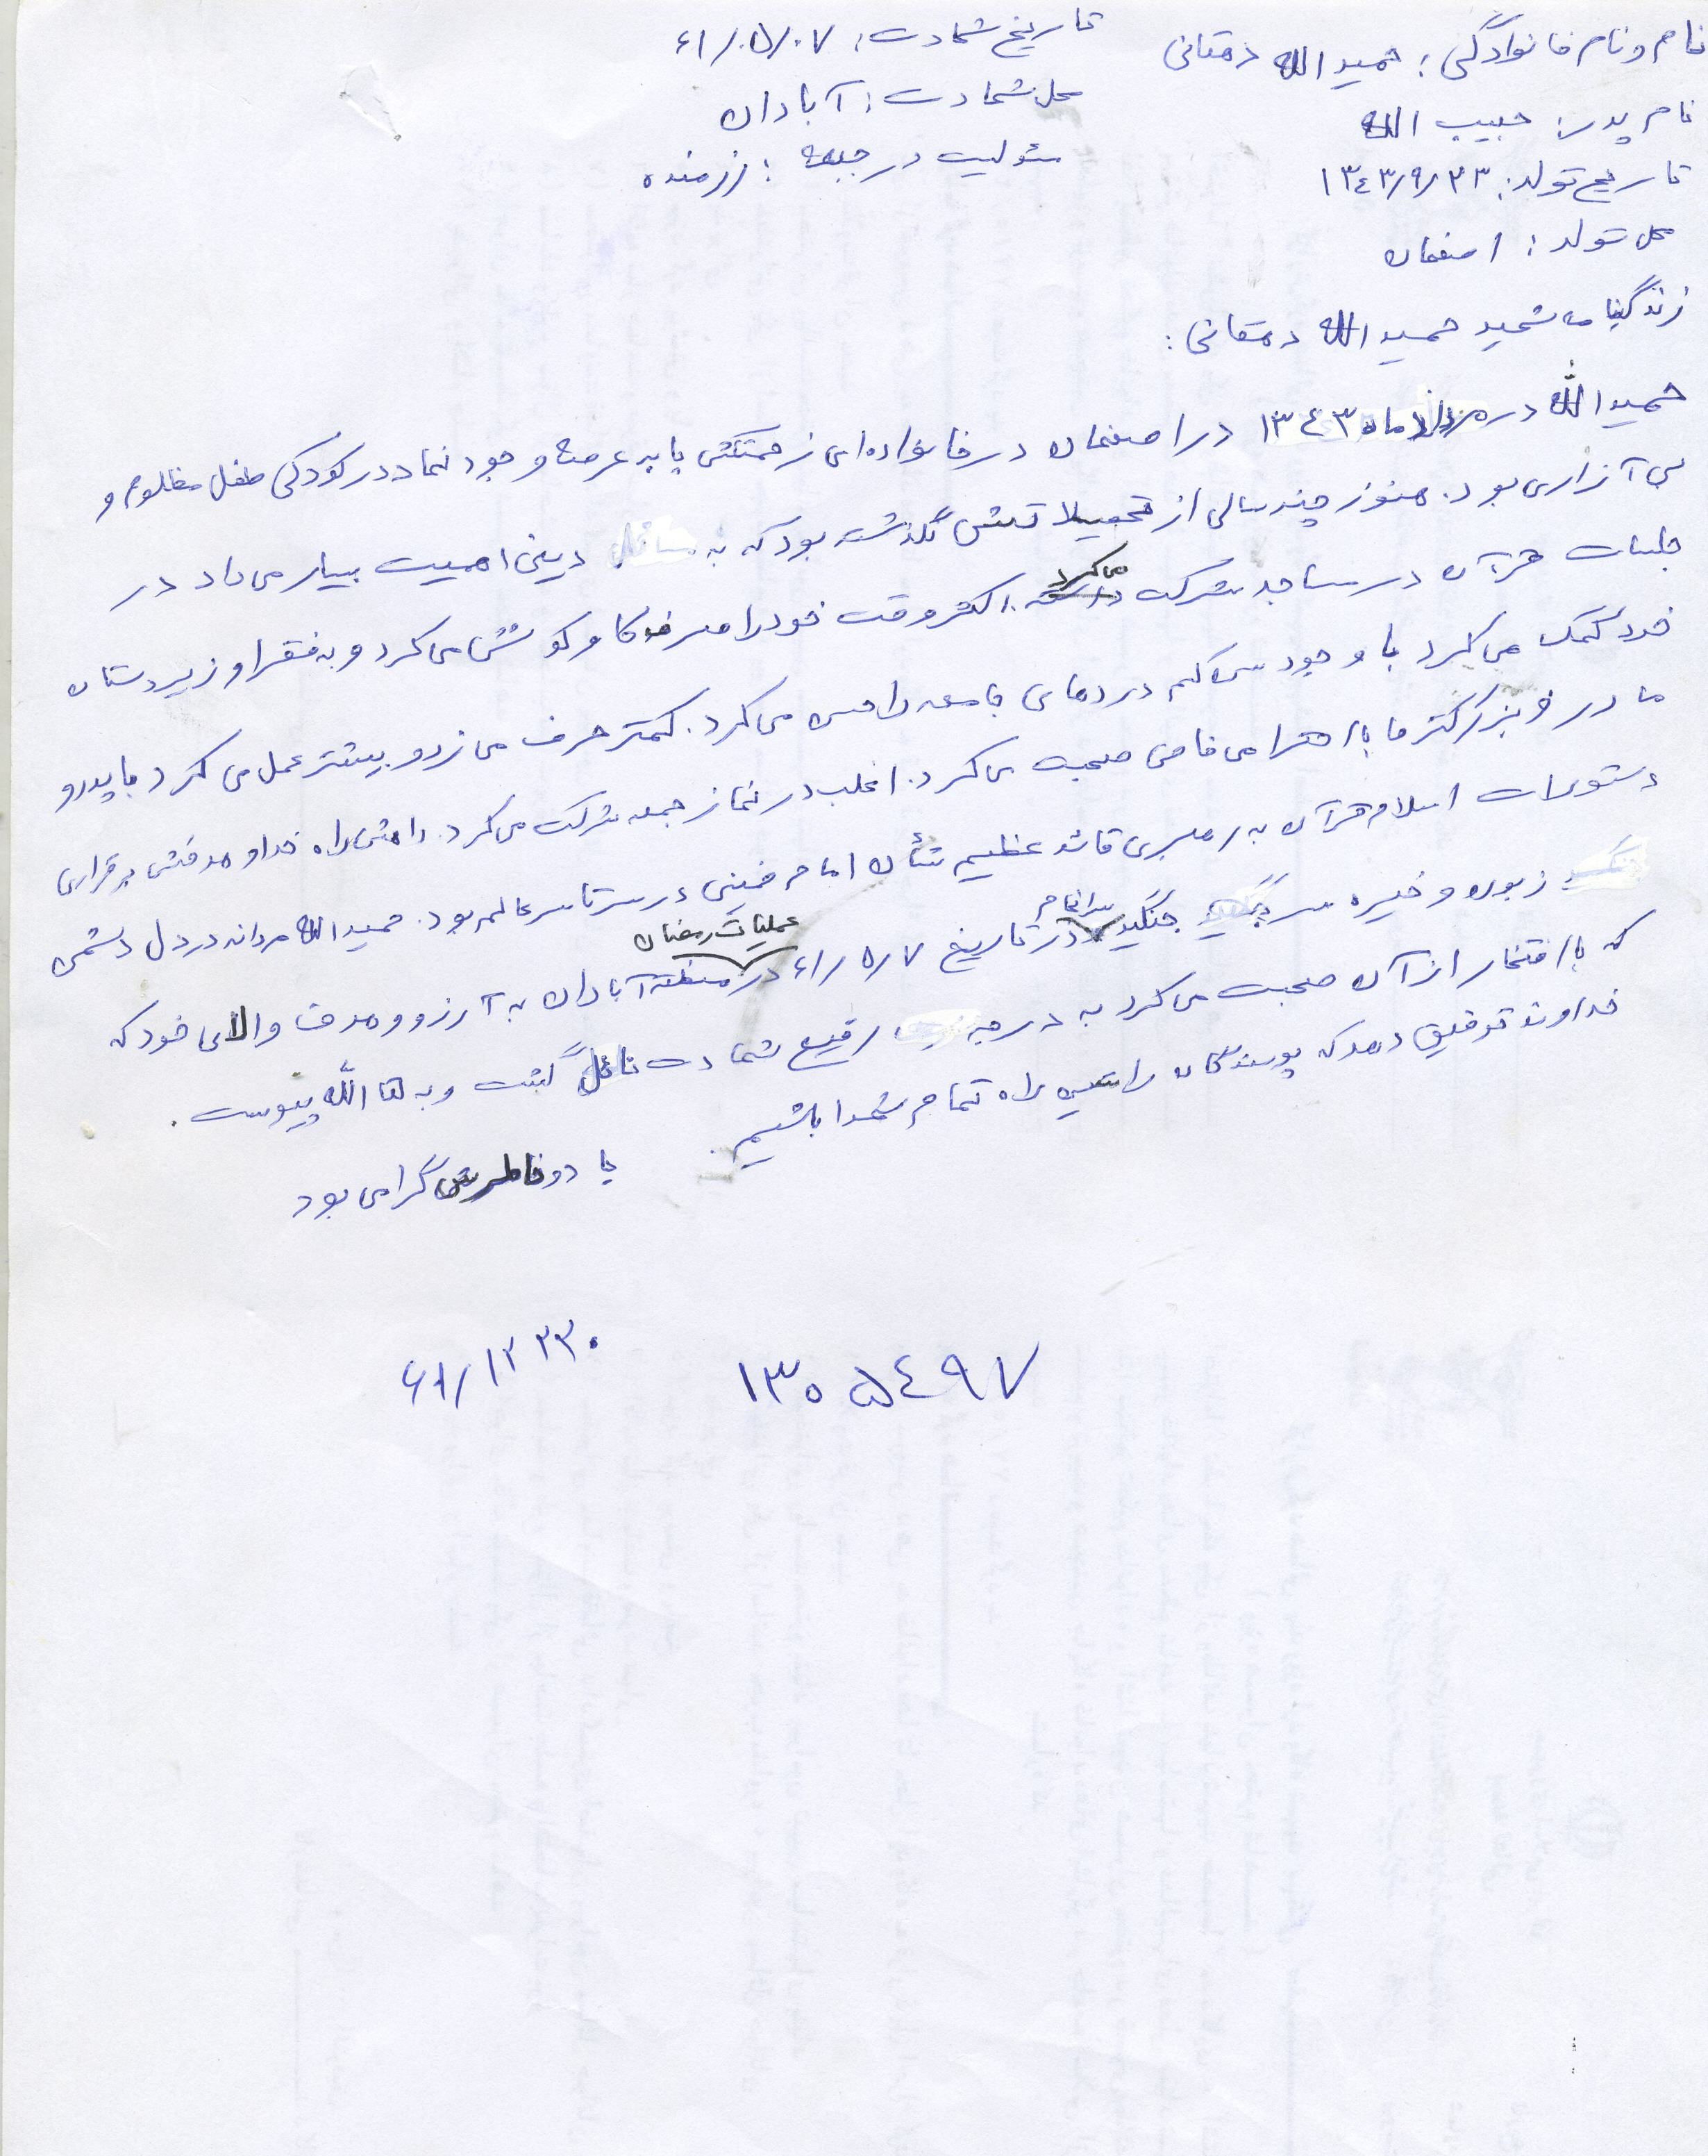 نام و نام خانوادگی : حمید الله دهقانی
نام پدر : حبیب الله
تاریخ تولد : ۱۳۴۳/۹/۲۳
محل تولد : اصفهان
تاریخ شهادت : ۶۱/۰۵/۰۷
محل شهادت : آبادان
مسئولیت در جبهه : رزمنده
زندگینامه شهید حمید الله دهقانی :
حمید الله در ماه ۱۳۴۳ در اصفهان در خانواده‌ای زحمتکش پا به عرصه وجود نهاد در کودکی طفل مظلوم و
بی آزاری بود . هنوز چند سالی از تحصیلاتش نگذشته بود که به مسائل دینی اهمیت بسیار می داد در
جلسات قرآن در مساجد شرکت می کرد اکثر وقت خود را صرف کار و کوشش می کرد و به فقرا و زیردستان
خود کمک می کرد با وجود سن کم دردهای جامعه را حس می کرد . کمتر حرف می زد و بیشتر عمل می کرد با پدر و
مادر و بزرگترها با احترامی خاص صحبت می کرد . اغلب در نماز جمعه شرکت می کرد . راهش راه خدا و هدفش برقراری
دستورات اسلام و قرآن به رهبری قائد عظیم شأن امام خمینی در سرتاسر عالم بود . حمید الله مردانه در دل دشمن
زبون و خیره سر جنگید سرانجام در تاریخ ۶۱/۵/۷ در عملیات رمضان منطقه آبادان به آرزو و هدف والای خود که
که با افتخار از آن صحبت می کرد به درجه رفیع شهادت نائل گشت و به لقا الله پیوست .
خداوند توفیق دهد که پویندگان راستین راه تمام شهدا باشیم .
یاد و خاطرش گرامی بود
۱۳۰۵۴۹۷
۶۱/۱۲۲۳۰